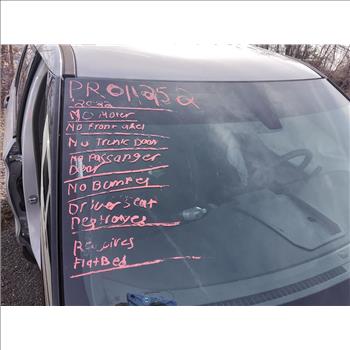 PR011252
2022
No Motor
No Front axel
No Trunk Door
No Passanger
Door
No Bumper
Driver Seat
Destroyed
Requires
FlatBed